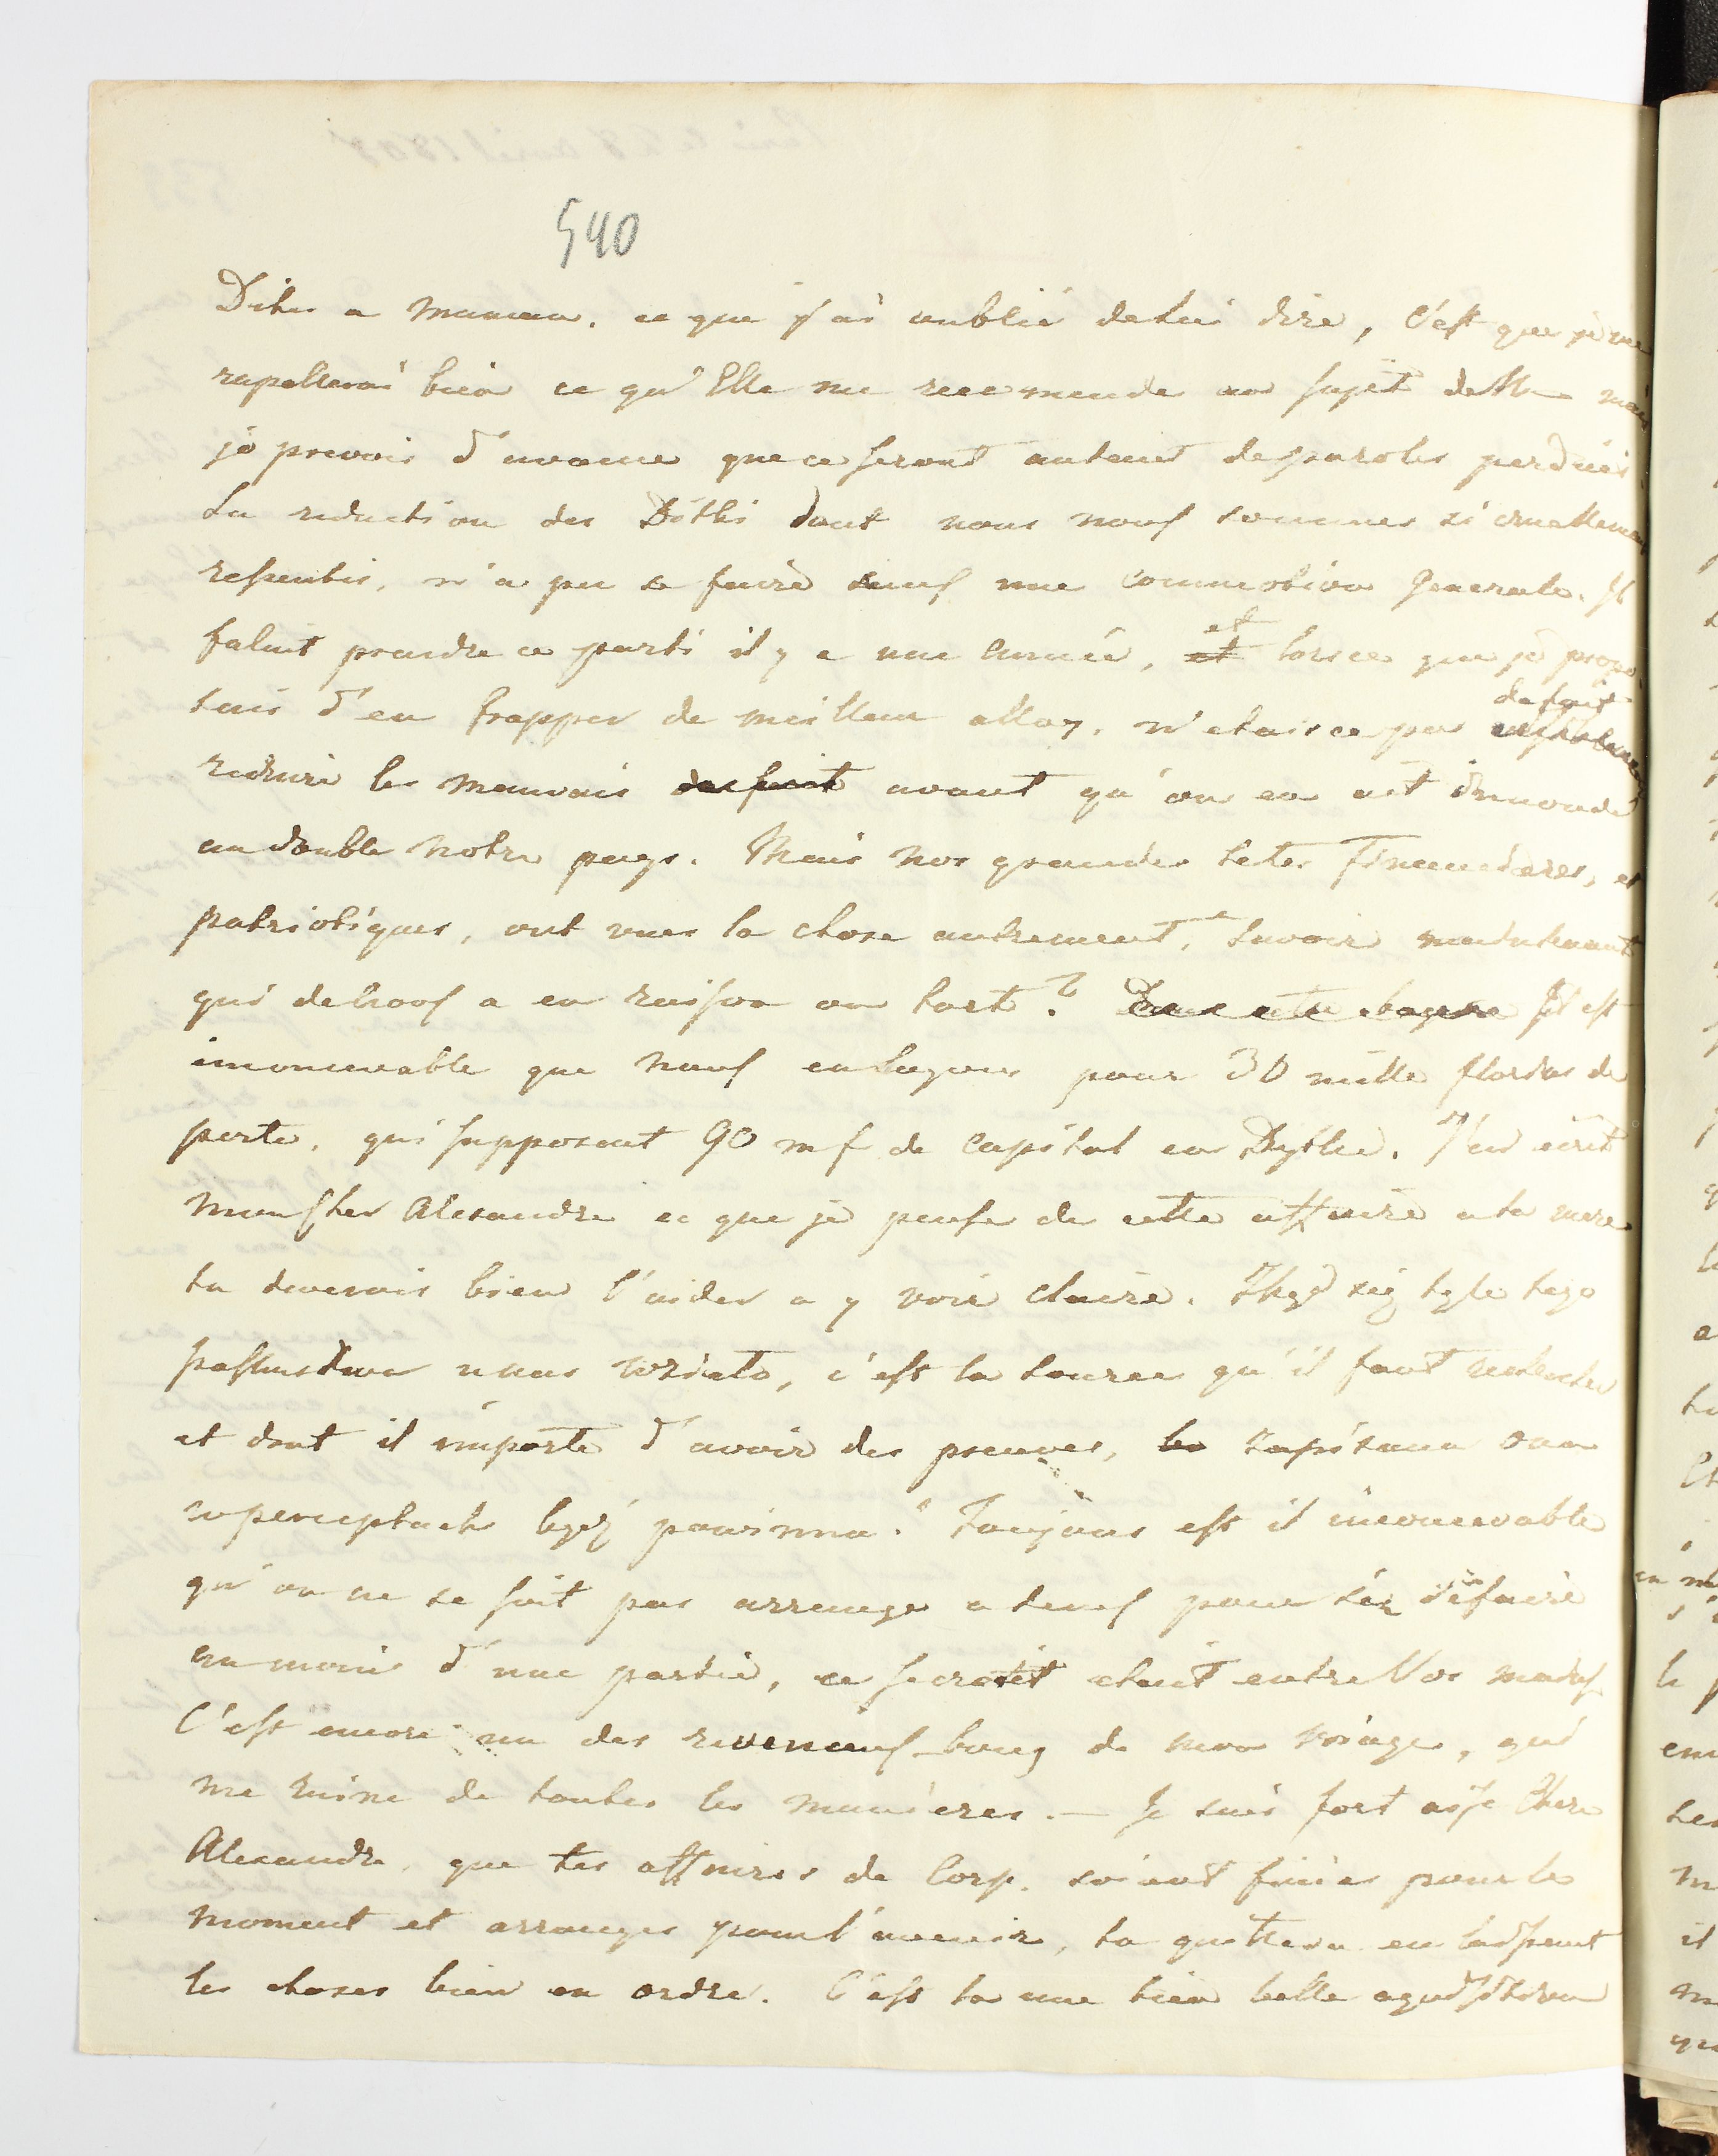 540
Dites a maman. ce que j'ai oublié de lui dire, C'est que je me
rapellerai bien ce qu'Elle me recomende au sujet de M mais
je prevois d'avance que ce seront autant de paroles perdues.
La reduction des Dÿtki dont nous nous sommes si cruellement
ressentis, n'a pu se faire sans une commotion generale. Il
falait prendre ce parti il y a une année, et lorsce que je propo-
sais d'en frapper de meilleur alloy, n'etais ce pas de fait
reduire les mauvais de fait avant qu'on en eut innondé
au double notre pays. Mais nos grandes tetes Financieres, et
patriotiques, ont vues la chose autrement, savoir maintenant
qui de nous a eu raison ou tort? Dans cette Il est
inconcevable que nous en soyons pour 30 mille florins de
perte, qui supposent 90 mf de Capital en Dytki. J'ai ecrit
Alexandre ce que je pense de cette affaire a ta mere
tu devrais bien l'aider a y voir claire. Zkąd się tyle tego
paskustwa u nas wzieło, c'est la source qu'il faut rechercher
et dont il importe d'avoir des preuves, bo zapisana ona
w perceptach bydź powinna. Toujours est il inconcevable
qu'on ne se soit pas arrangé a tems pour s'en défaire
au moins d'une partie, ce secret étant entre Vos mains
C'est encore un des revenans-bons de mon voiage, qui
me ruine de toutes les manieres. — Je suis fort aise Chere
Alexandre, que tes affaires de Corp. soient finies pour le
moment et arranges pour l'avenir, ta quittera en laissant
les choses bien en ordre. C'est la une bien belle aquisition